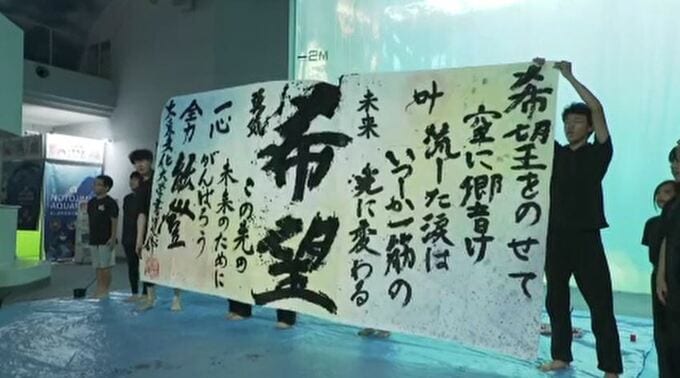 希望をのせて
空に響け
叶
流した涙は
いつか一筋の
未来
光に変わる
希望
この先の
一心
未来のために
がんばろう
全力
能登
大東文化大学書道
−2M
NOTOJIMA
AQUAR